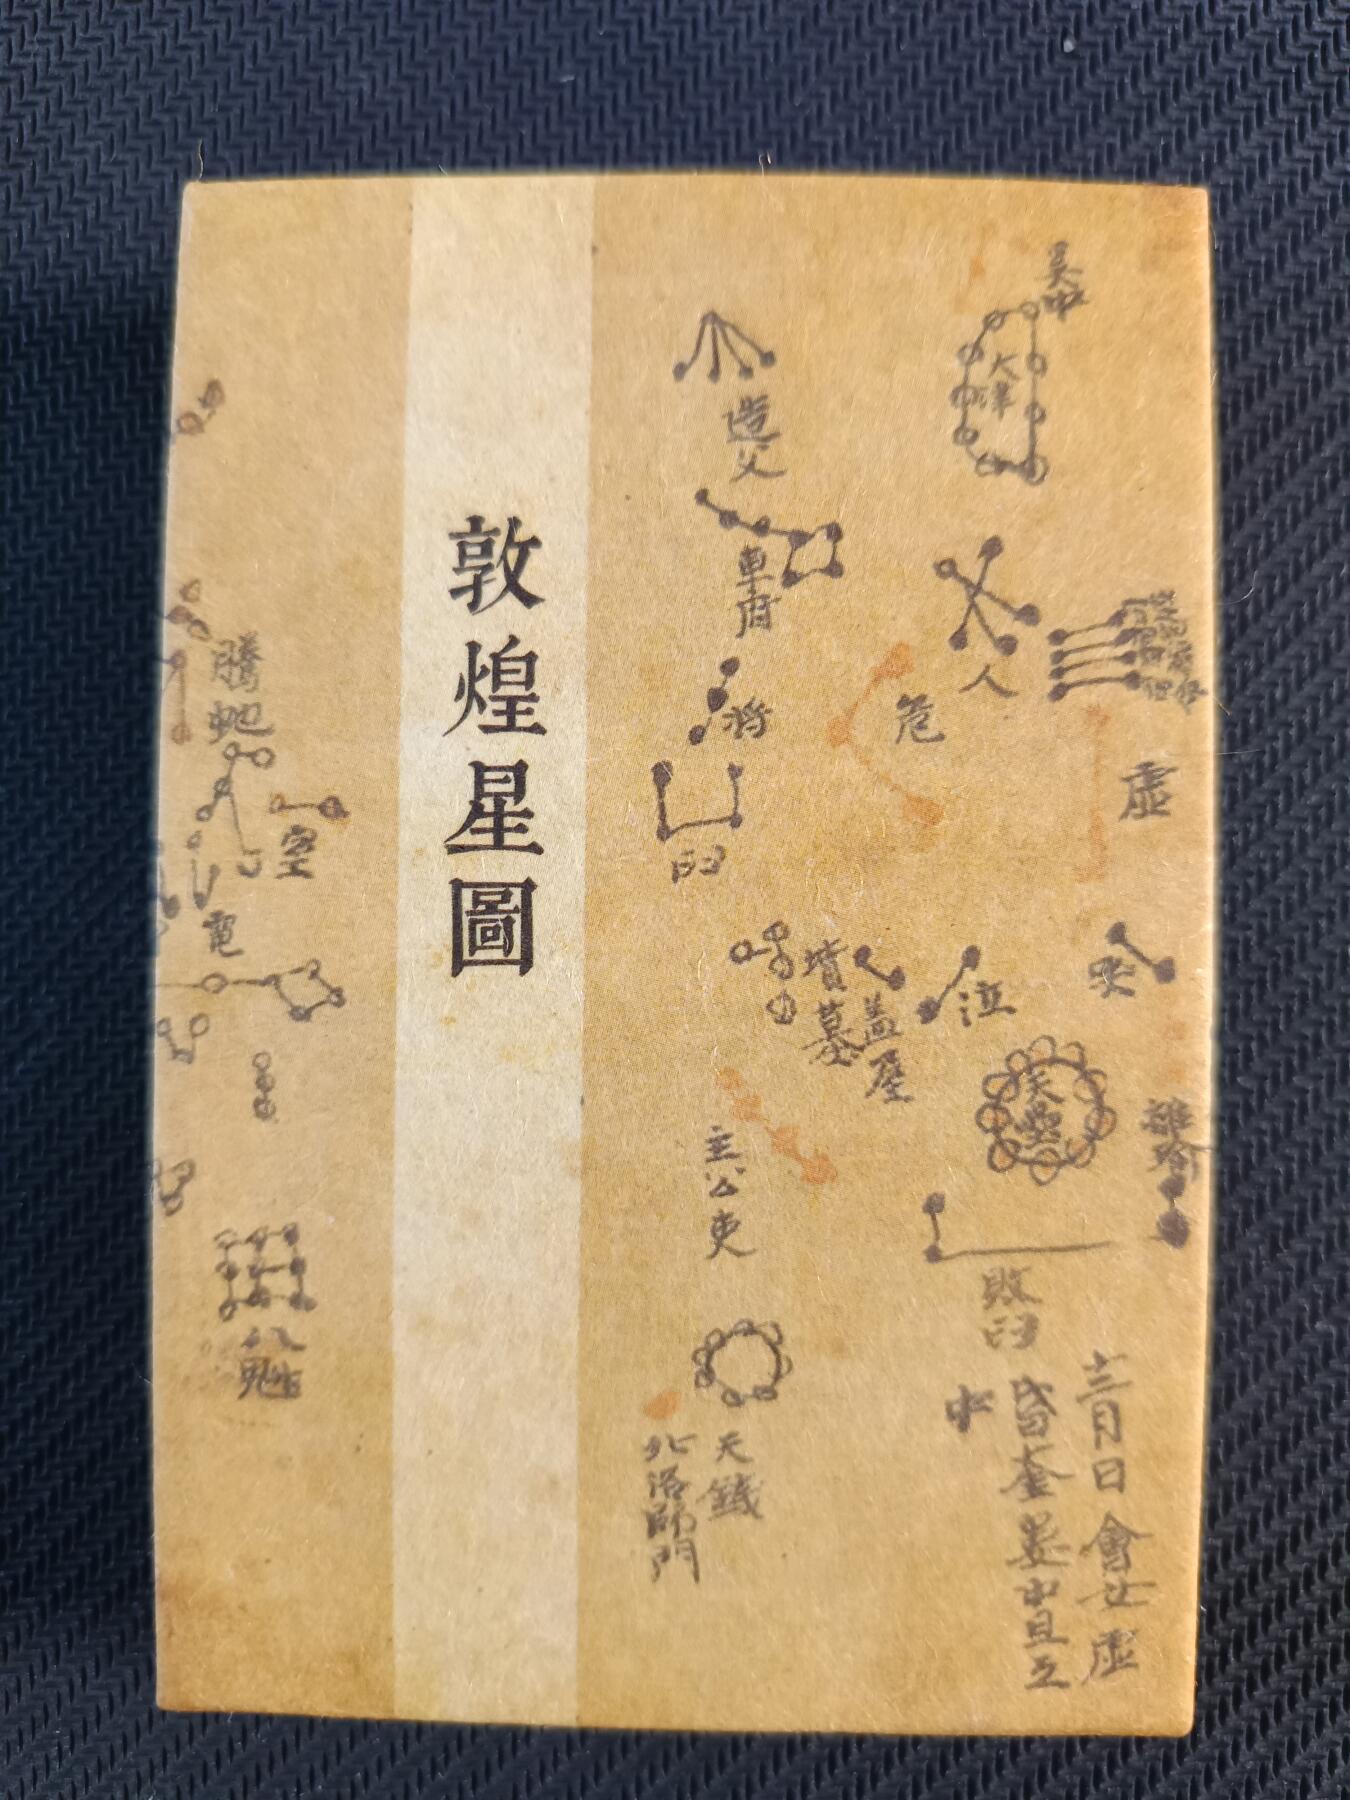 敦煌星圖
造父
車府
人
危
虛
將
臼
墳墓
蓋屋
泣
哭
天壘
敗臼
主公吏
天錢
北落師門
十二月日會女虛
昏奎婁中旦互
中
騰蛇
空
電
八魁